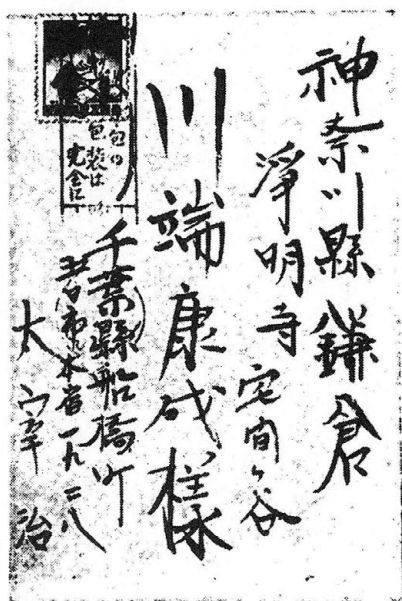 神奈川縣鎌倉
淨明寺宅間ヶ谷
川端康成様
千葉縣船橋町
五日市本宿一九二八
太宰治
包装は
完全に